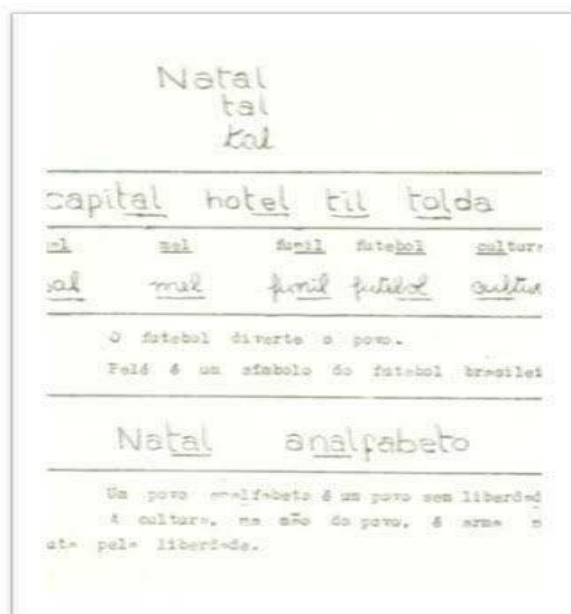 Natal
tal
tal
capital hotel til tolda
mel funil futebol cultur
sal mel funil futebol cultur
O futebol diverte o povo.
Pelé é um símbolo do futebol brasilei
Natal analfabeto
Um povo analfabeto é um povo sem liberdad
A cultura, na mão do povo, é arma
uta pela liberdade.